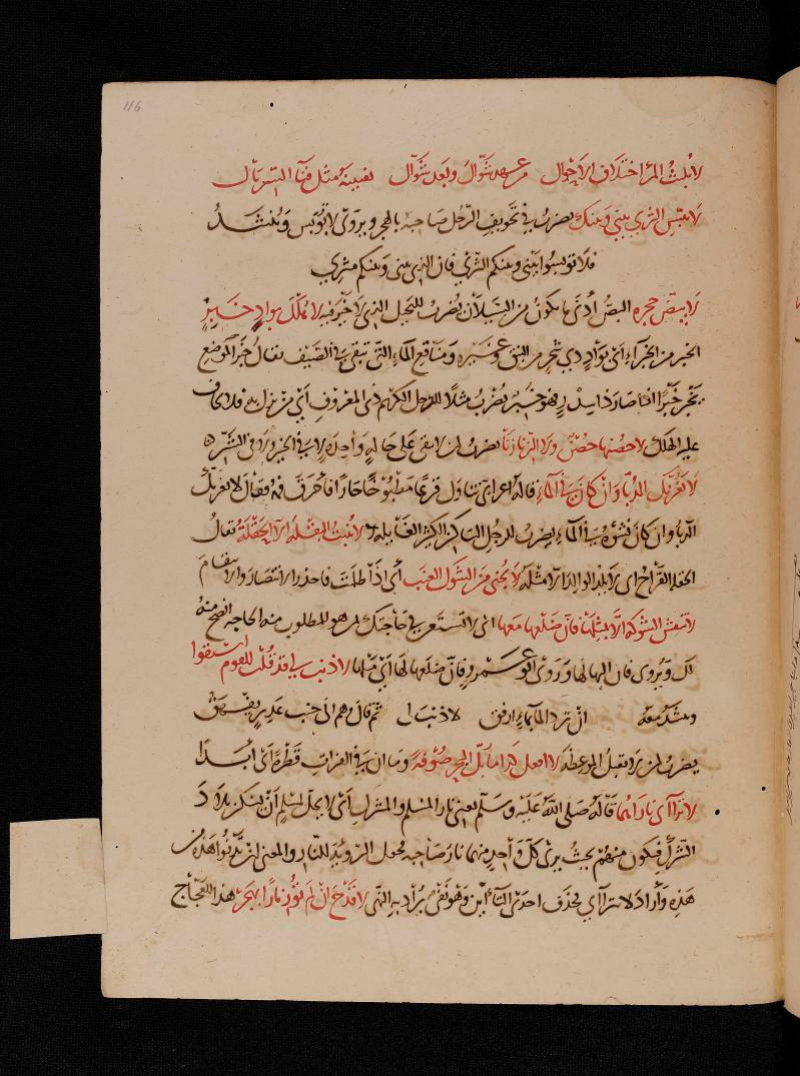 116
لا يلبث المرء اختلاف الاحوال من عهد شوال وبعد شوال يفنينه مثل فناء السربال
لا تيبس الثرى بيني وبينك يضرب في تخويف الرجل صاحبه بالهجر ويروى لا توبس وينشد
فلا توبسوا بيني وبينكم الثرى فان الذي بيني وبينكم مثري
لا يبض حجره البض أدنى ما يكون من السيلان يضرب للبخيل الذي لا خير فيه لا تهلك بواد خبر
الخبر من الخبراء أي بواد ذي شجر من النبق وغيره ومناقع الماء التي تبقى في الصيف يقال خبر الموضع
يخبر خبرا اذا صار ذا سدر فهو خبر يضرب مثلا للرجل الكريم ذي المعروف أي من نزل به فلا يخاف
عليه الهلك لا حضنها حضن ولا الزناء زنا يضرب لمن لا يبقى على حالة واحدة لا في الخير ولا في الشر
لا يغرنك الدباء وان كان في الماء قاله اعرابي تناول قرعا مطبوخا حارا فأحرق فمه فقال لا يغرنك
الدباء وان كان نشوه في الماء يضرب للرجل الساكن الكثير الغائلة لا تنبت البقلة الا الحقلة يقال
الحقلة القراح اي لا يلد الوالد الا مثله لا تجني من الشوك العنب أي اذا ظلمت فاحذر الانتصار والانتقام
لا تنقش الشوكة بالشوكة بمثلها فان ضلعها معها اي لا تستعن في حاجتك بمن هو للمطلوب منه الحاجة انصح منه
لك ويروى فان الهالها وروى أبو عمرو فان ضلعها لها أي ميلها لا ذنب لي قد قلت للقوم استقوا
وينشد معه ان ترد الماء بماء ارفق لا ذنب لي ثم قال وهم الى جنب غدير يفهق
يضرب لمن لا يقبل الموعظة لا افعل كذا ما بل البحر صوفة وما ان في الفرات قطرة أي ابدا
لا تراءى ناراهما قاله صلى الله عليه وسلم يعني نار المسلم والمشرك أي لا يحل لمسلم أن يسكن بلاد
الشرك فيكون منهم بحيث يرى كل واحد منهما نار صاحبه فجعل الرؤية للنار والمعنى ان تدنو هذه من
هذه وأراد لا تتراءى فحذف احدى التائين وهو نفي يراد به النهي لا قدح ان لم تور نارا بهجر هذا للعجاج